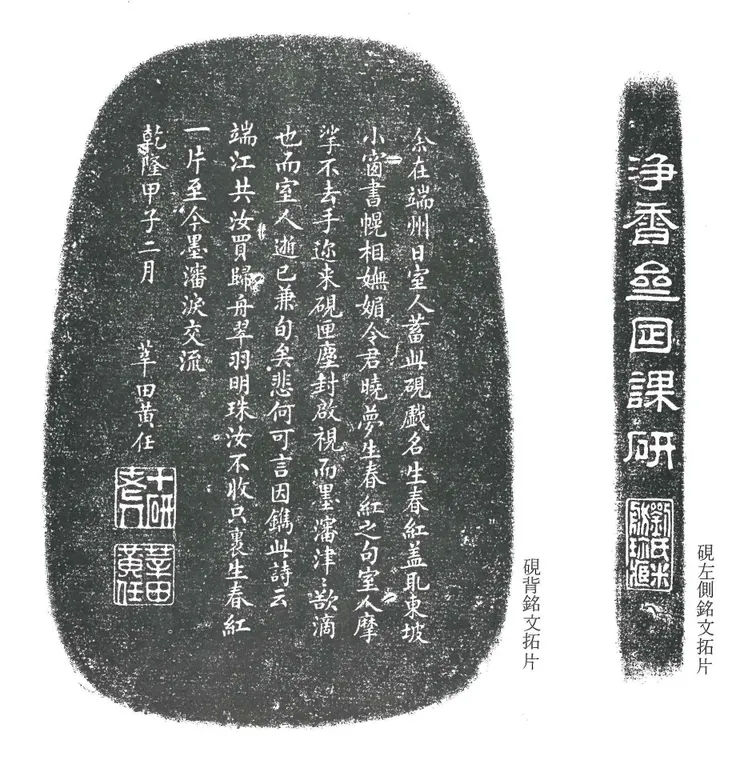 余在端州日室人蓄此硯戲名生春紅蓋取東坡
小窗書幌相嫵媚令君曉夢生春紅之句室人摩
挲不去手迩来硯匣塵封啟視而墨瀋津〻欲滴
也而室人逝已兼旬矣悲何可言因鐫此詩云
端江共汝買歸舟翠羽明珠汝不收只裹生春紅
一片至今墨瀋淚交流
乾隆甲子二月 莘田黃任
十研老人
莘田黃任
硯背銘文拓片
淨香課研
硯左側銘文拓片